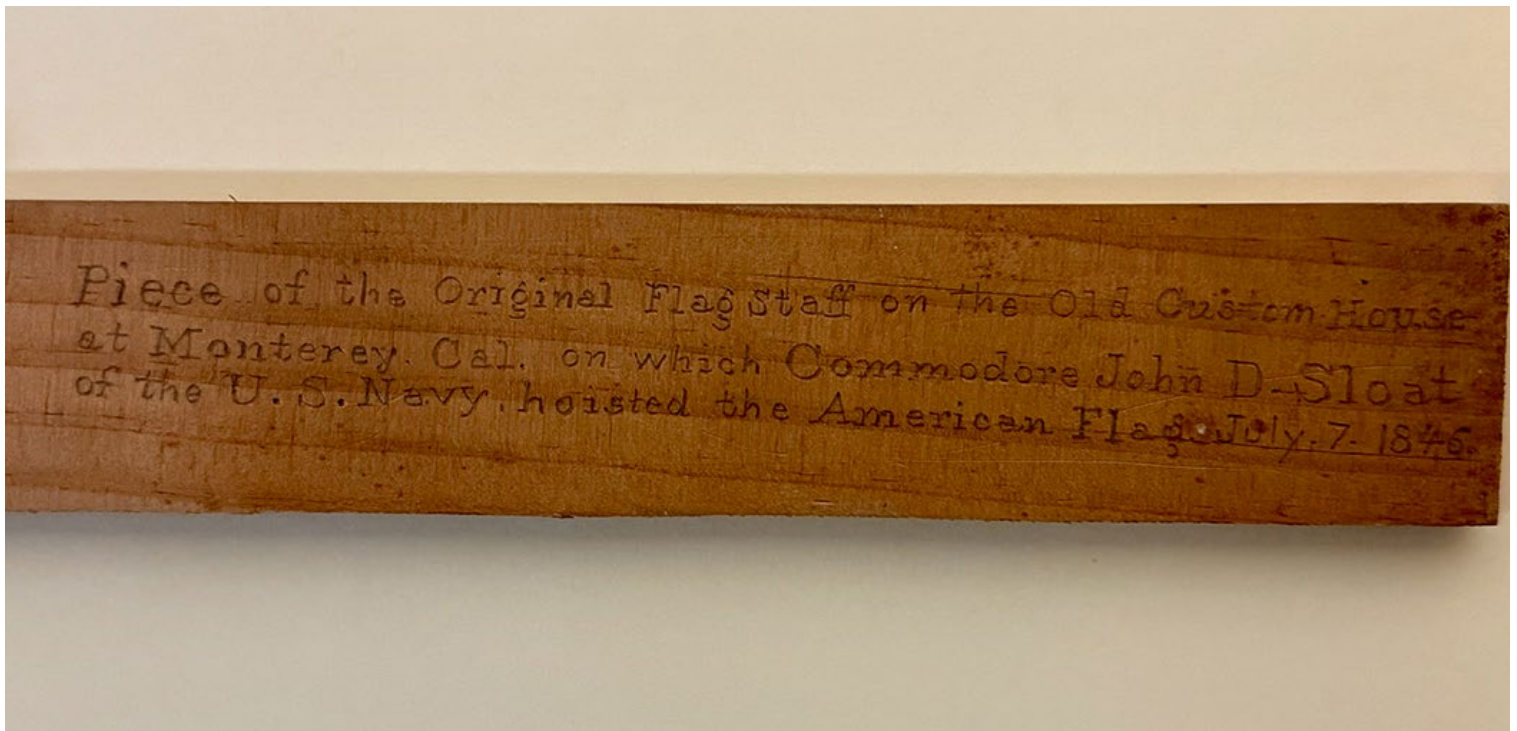 Piece of the Original Flag Staff on the Old Custom House
at Monterey. Cal. on which Commodore John D. Sloat
of the U.S. Navy. hoisted the American Flag. July. 7. 1846.